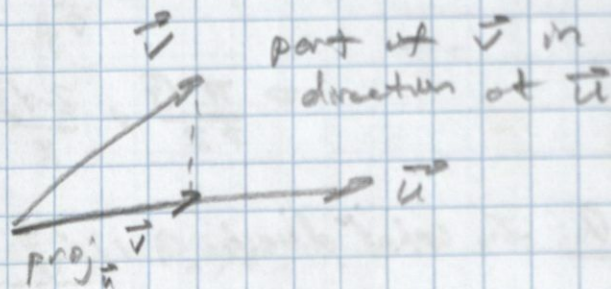 v⃗ part of v⃗ in
direction of u⃗
u⃗
proj_u⃗ v⃗